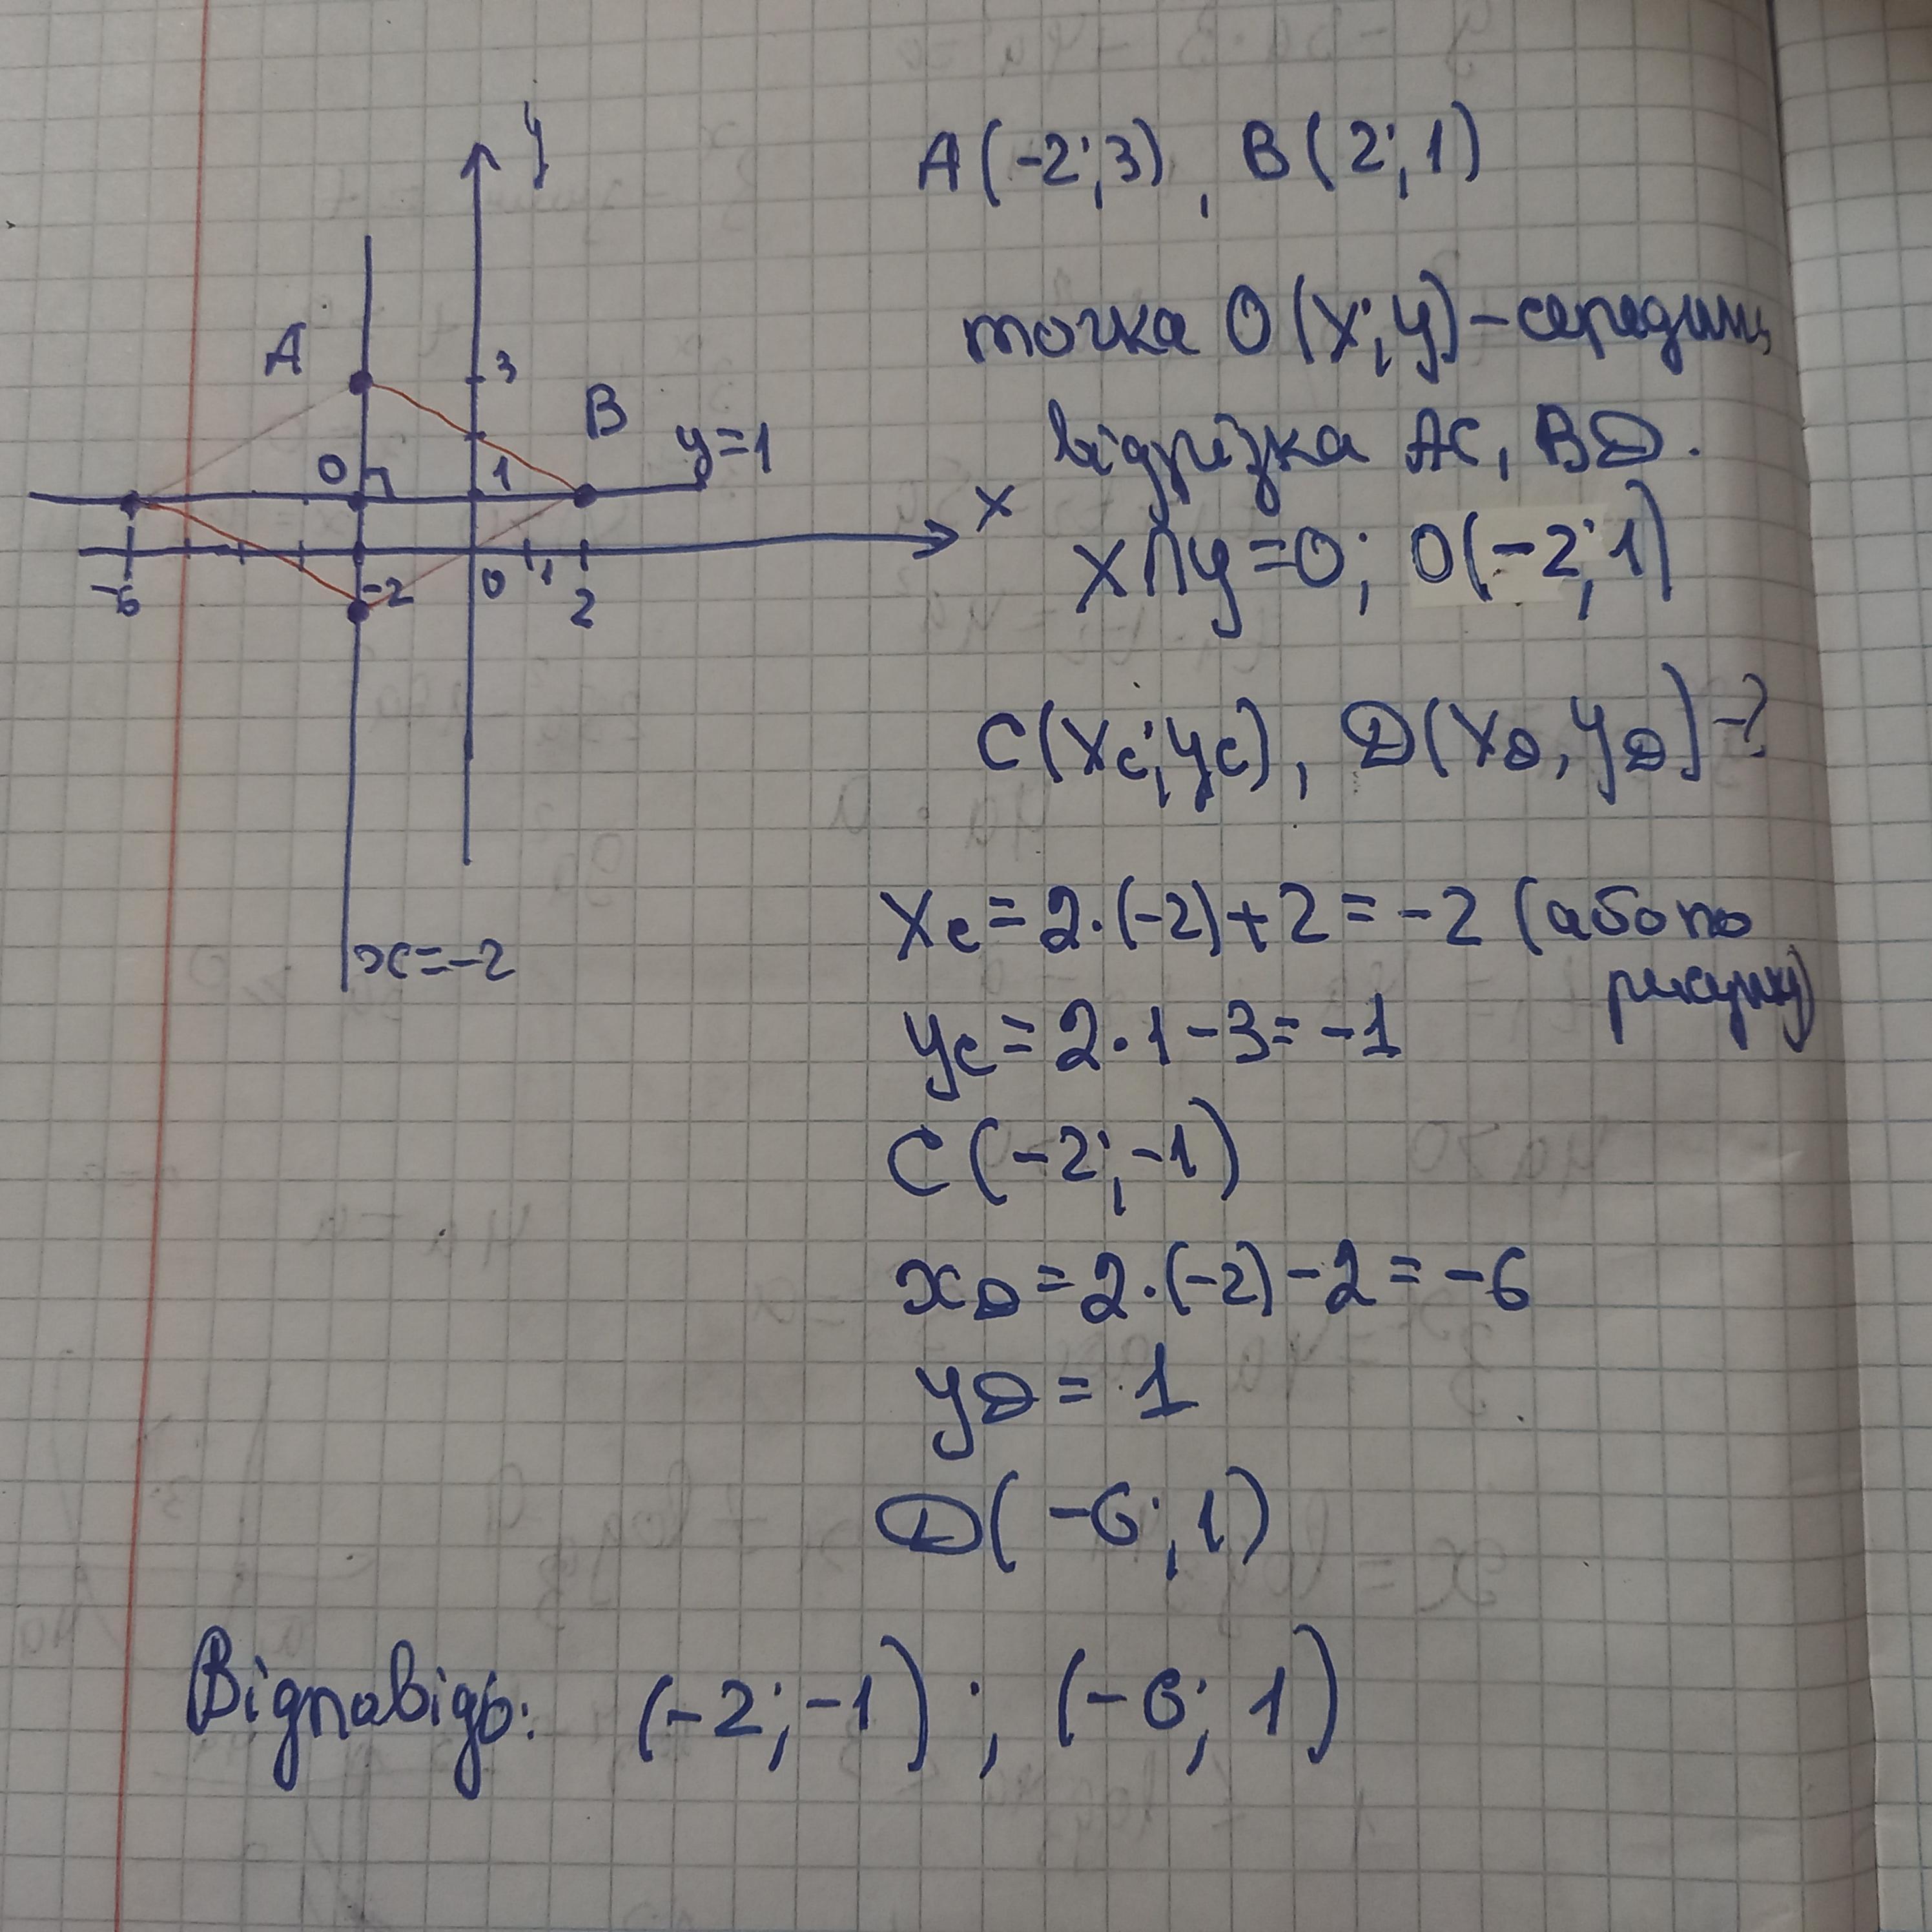 y
A
3
B
y=1
0
1
x
-6
-2
0
1
2
x=-2
A(-2;3), B(2;1)
точка O(x;y)-середина
відрізка AC, BD.
x∩y=0; O(-2;1)
C(xc;yc), D(xD,yD)-?
xc=2·(-2)+2=-2 (або по
рисунку)
yc=2·1-3=-1
C(-2;-1)
xD=2·(-2)-2=-6
yD=1
D(-6;1)
Відповідь: (-2;-1); (-6;1)